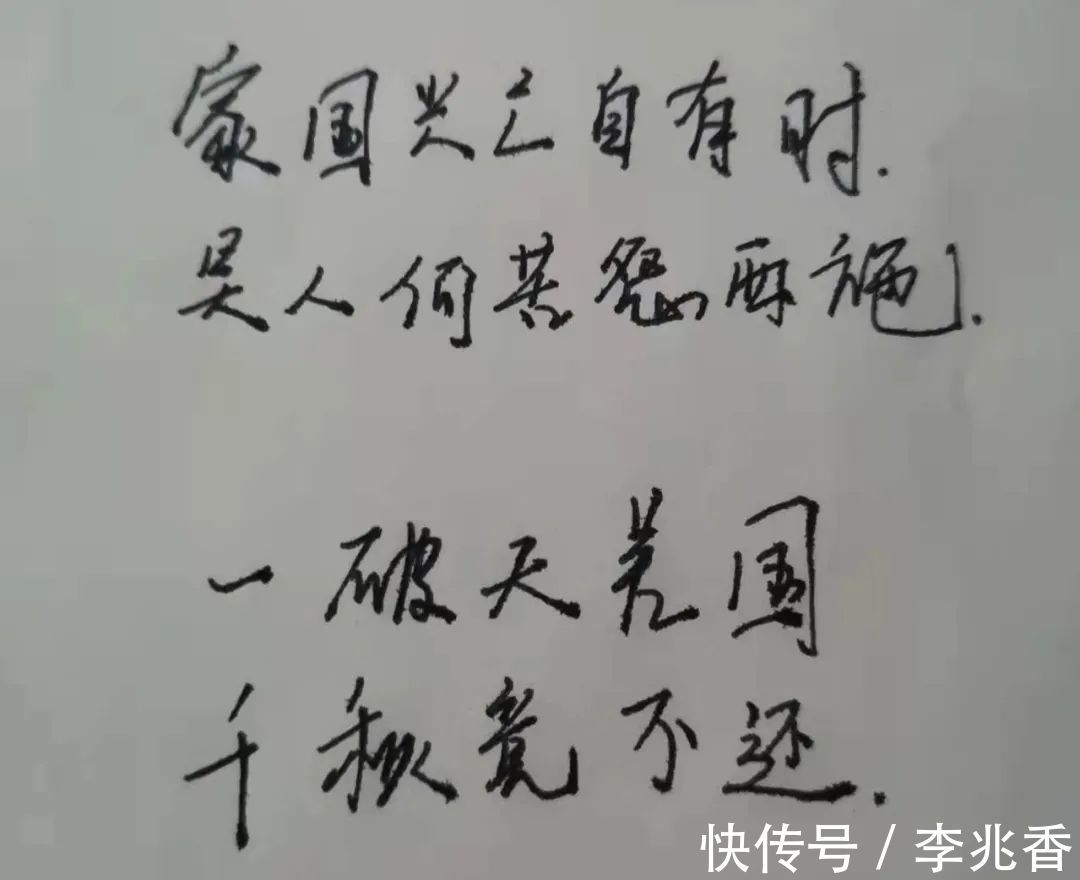 家国兴亡自有时.
吴人何苦怨西施.
一破夫差国
千秋竟不还.
快传号/李兆香